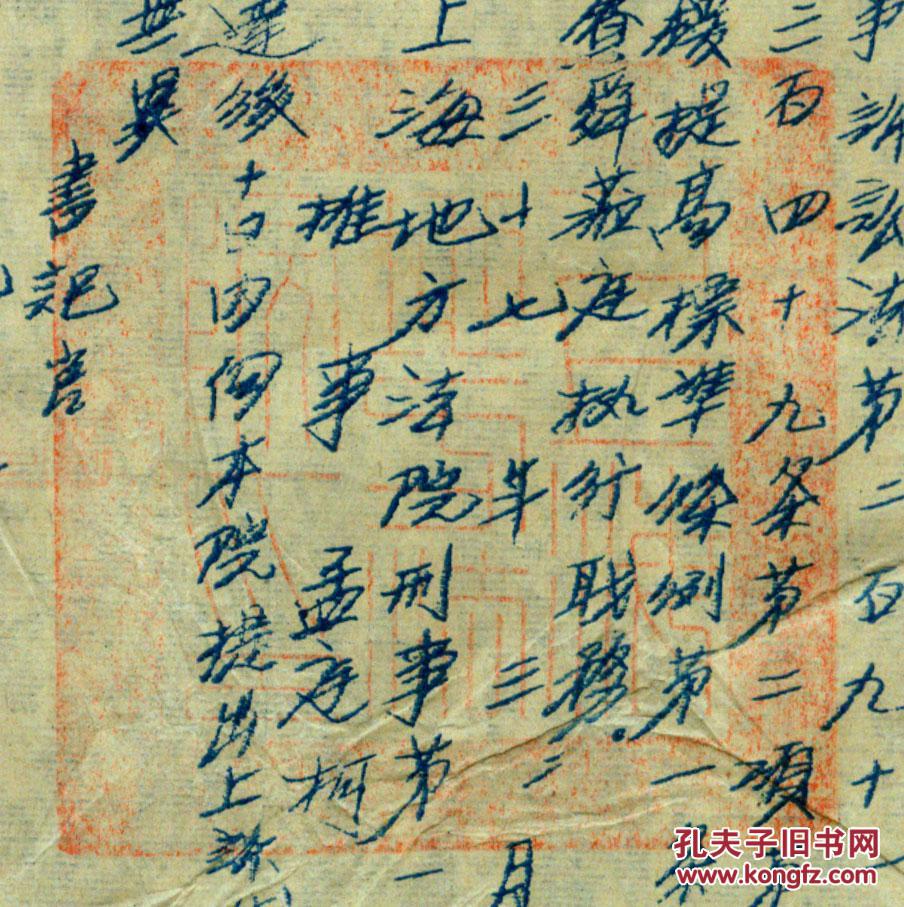 事訴訟法第二百九十一
三百四十九条第二項前
援提高標準條例第一条
舜蒞庭執行职務。
三十七年三月
上海地方法院刑事第一
推事孟庭柯
達後十日内向本院提出上訴
無異
書記官
孔夫子旧书网
www.kongfz.com